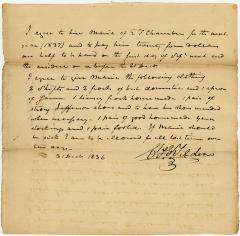 I agree to hire Maria of E T Chambers for the next
year (1837) and to pay him twenty four dollars
one half to be paid on the first day of Sep. next and
the residue on or before the 25 Decr.
I agree to give Maria the following clothing
2 shifts and 2 frocks of domestic and 1 apron
of 1 linsey frock homemade 1 pair of
strong shoes and to have her shoes mended
when necessary 1 pair of good homemade yarn
stockings and 1 pair footed. If Maria should
be sick I am to be allowed for all lost time over
ten days.
31 Decr 1836